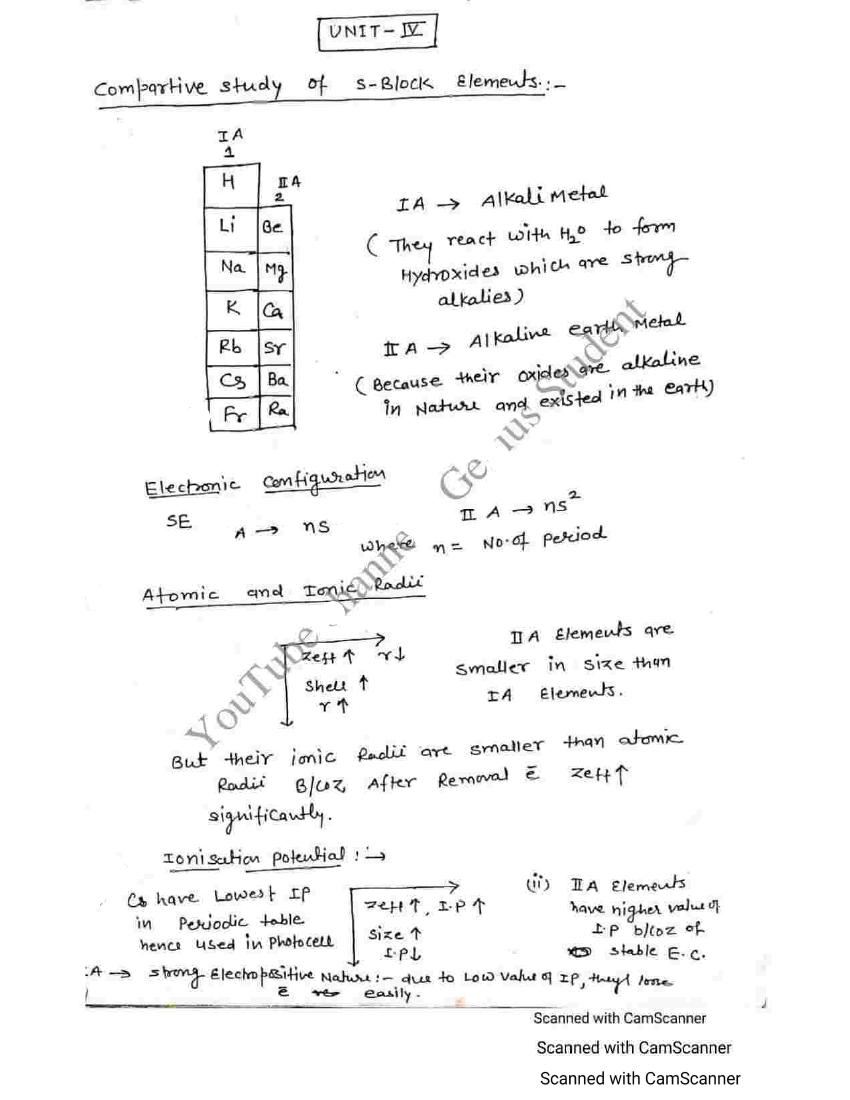 UNIT-IV
Compartive study of s-Block Elements:-
IA
1
H
IIA
2
Li Be
Na Mg
K Ca
Rb Sr
Cs Ba
Fr Ra
IA → Alkali Metal
( They react with H₂O to form
Hydroxides which are strong
alkalies)
II A → Alkaline earth Metal
(Because their oxides are alkaline
in Nature and existed in the earth)
Electronic Configuration
SE A → ns
II A → ns²
where n = No. of period
Atomic and Ionic Radii
Zeff ↑ r↓
Shell ↑
r ↑
II A Elements are
smaller in size than
IA Elements.
But their ionic Radii are smaller than atomic
Radii B/coz, After Removal ē Zeff ↑
significantly.
Ionisation potential :→
Cs have Lowest IP
in Periodic table
hence used in Photocell
Zeff ↑, I.P ↑
Size ↑
I.P↓
(ii) II A Elements
have higher value of
I.P b/coz of
stable E.C.
:A → strong Electropositive Nature:- due to Low value of IP, they lone
ē easily.
YouTube hanne Ge ius Student
Scanned with CamScanner
Scanned with CamScanner
Scanned with CamScanner